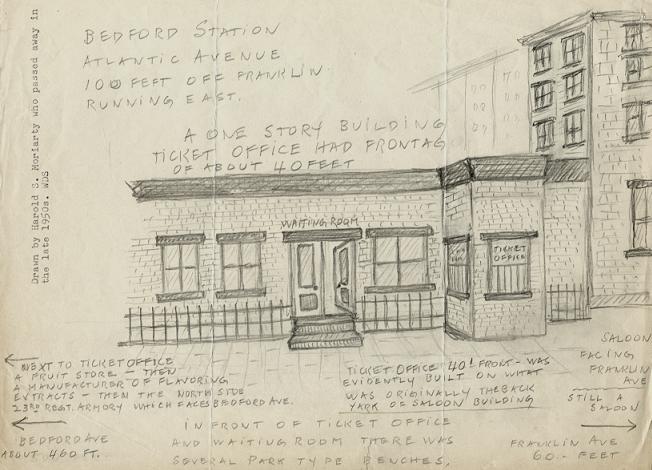 BEDFORD STATION
ATLANTIC AVENUE
100 FEET OFF FRANKLIN
RUNNING EAST.
A ONE STORY BUILDING
TICKET OFFICE HAD FRONTAG
OF ABOUT 40 FEET
Drawn by Harold S. Moriarty who passed away in
the late 1950s. WDS
WAITING ROOM
TICKET
OFFICE
NEXT TO TICKET OFFICE
A FRUIT STORE - THEN
A MANUFACTURER OF FLAVORING
EXTRACTS - THEN THE NORTH SIDE
23RD REGT. ARMORY WHICH FACES BEDFORD AVE.
TICKET OFFICE 40' FRONT - WAS
EVIDENTLY BUILT ON WHAT
WAS ORIGINALLY THE BACK
YARK OF SALOON BUILDING
SALOON
FACING
FRANKLIN
AVE
STILL A
SALOON
BEDFORD AVE
ABOUT 460 FT.
IN FRONT OF TICKET OFFICE
AND WAITING ROOM THERE WAS
SEVERAL PARK TYPE BENCHES.
FRANKLIN AVE
60 - FEET